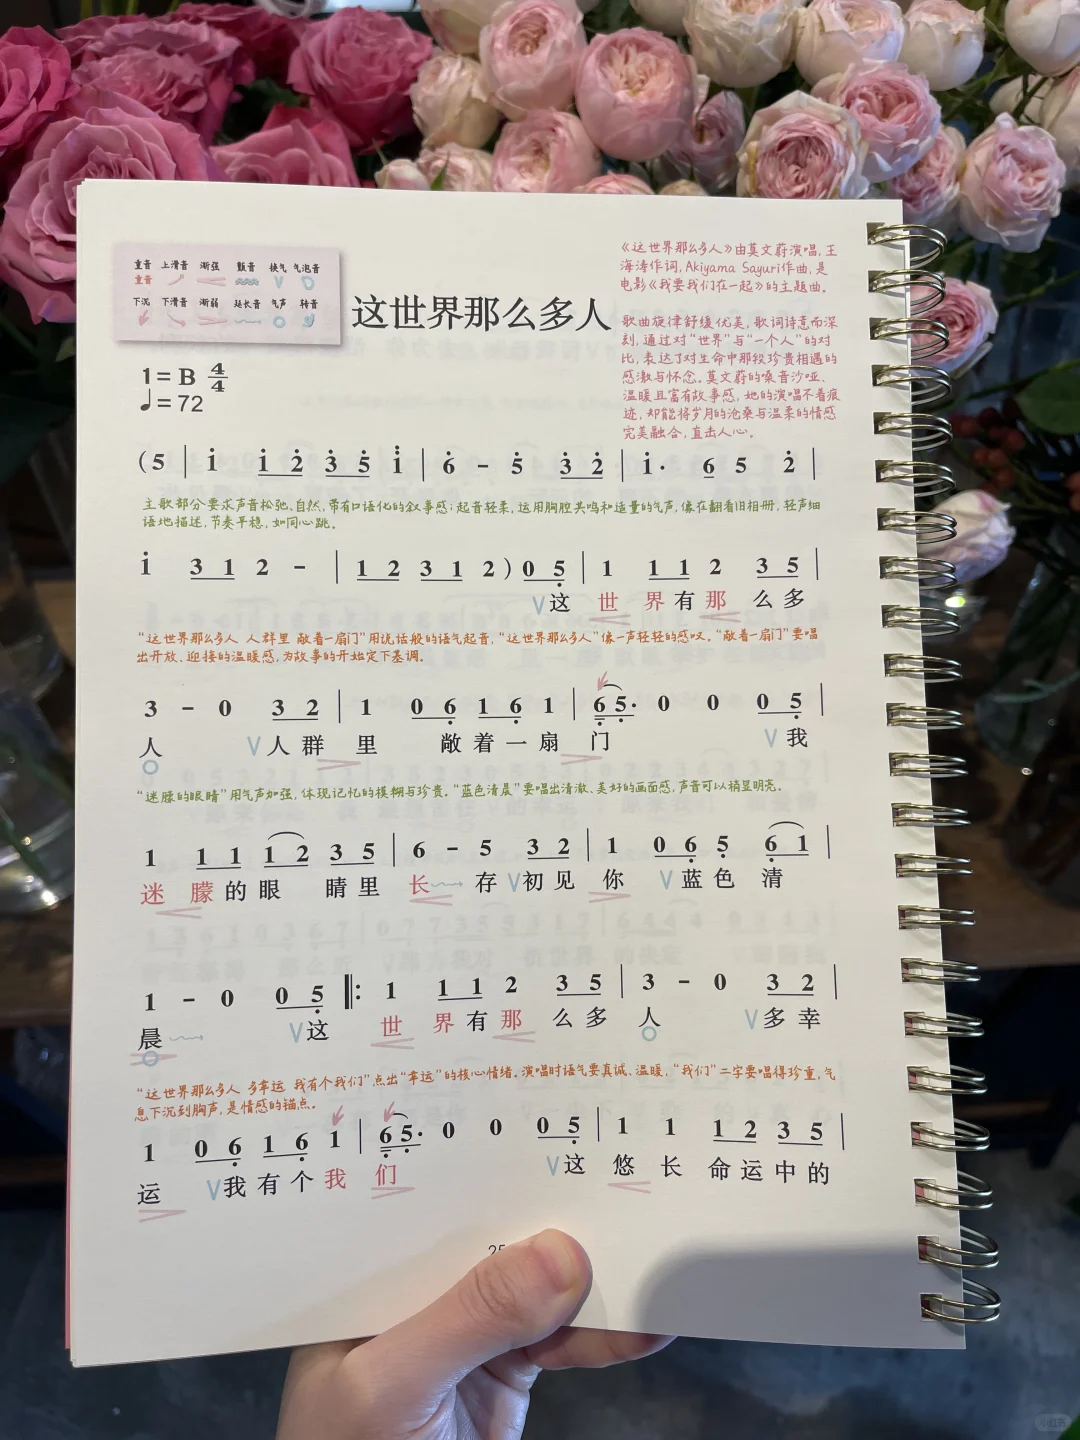 重音 上滑音 渐强 颤音 换气 气泡音
重音
下沉 下滑音 渐弱 延长音 气声 转音
这世界那么多人
《这世界那么多人》由莫文蔚演唱,王
海涛作词,Akiyama Sayuri作曲,是
电影《我要我们在一起》的主题曲。
歌曲旋律舒缓优美,歌词诗意而深
刻,通过对“世界”与“一个人”的对
比,表达了对生命中那段珍贵相遇的
感激与怀念。莫文蔚的嗓音沙哑、
温暖且富有故事感,她的演唱不着痕
迹,却能将岁月的沧桑与温柔的情感
完美融合,直击人心。
1=B 4/4
♩=72
(5 | i i 2 3 5 i | 6 - 5 3 2 | i· 6 5 2 |
主歌部分要求声音松弛、自然,带有口语化的叙事感;起音轻柔,运用胸腔共鸣和适量的气声,像在翻看旧相册,轻声细
语地描述,节奏平稳,如同心跳。
i 3 1 2 - | 1 2 3 1 2 ) 0 5 | 1 1 1 2 3 5 |
V这 世 界 有 那 么 多
“这世界那么多人 人群里 敞着一扇门”用说话般的语气起音,“这世界那么多人”像一声轻轻的感叹。“敞着一扇门”要唱
出开放、迎接的温暖感,为故事的开始定下基调。
3 - 0 3 2 | 1 0 6 1 6 1 | 6 5· 0 0 0 5 |
人 V人 群 里 敞 着 一 扇 门 V我
“迷朦的眼睛”用气声加强,体现记忆的模糊与珍贵。“蓝色清晨”要唱出清澈、美好的画面感,声音可以稍显明亮。
1 1 1 1 2 3 5 | 6 - 5 3 2 | 1 0 6 5 6 1 |
迷 朦 的 眼 睛 里 长 存 V初 见 你 V蓝 色 清
1 - 0 0 5 ‖: 1 1 1 2 3 5 | 3 - 0 3 2 |
晨 V这 世 界 有 那 么 多 人 V多 幸
“这世界那么多人 多幸运 我有个我们”点出“幸运”的核心情绪。演唱时语气要真诚、温暖,“我们”二字要唱得珍重,气
息下沉到胸声,是情感的锚点。
1 0 6 1 6 1 | 6 5· 0 0 0 5 | 1 1 1 2 3 5 |
运 V我 有 个 我 们 V这 悠 长 命 运 中 的
小红书